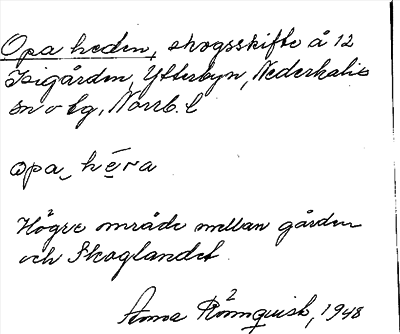 Opa heden, skogsskifte å 12
Isigården, Ytterbyn, Nederkalix
sn o tg, Norrb. l
opa hēra
Högre område mellan gården
och Skoglandet.
Anna Rönnquist, 1948